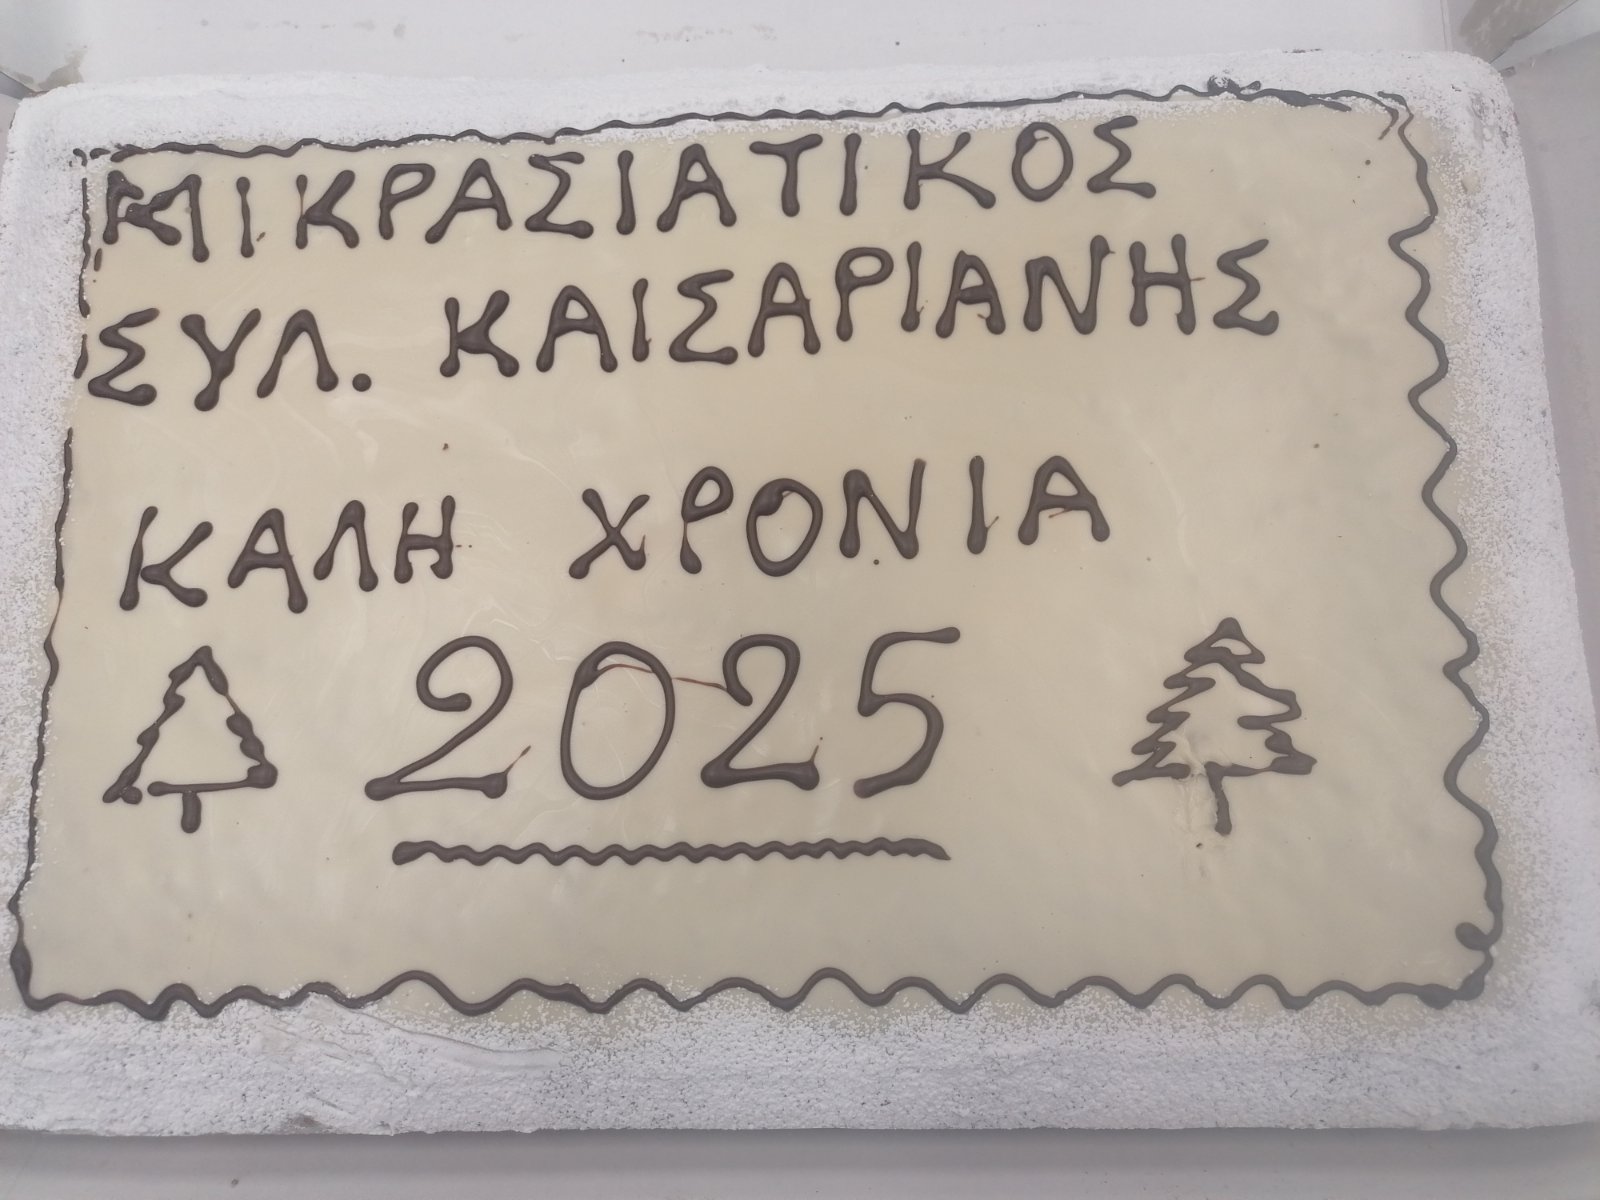 ΜΙΚΡΑΣΙΑΤΙΚΟΣ
ΣΥΛ. ΚΑΙΣΑΡΙΑΝΗΣ
ΚΑΛΗ ΧΡΟΝΙΑ
2025